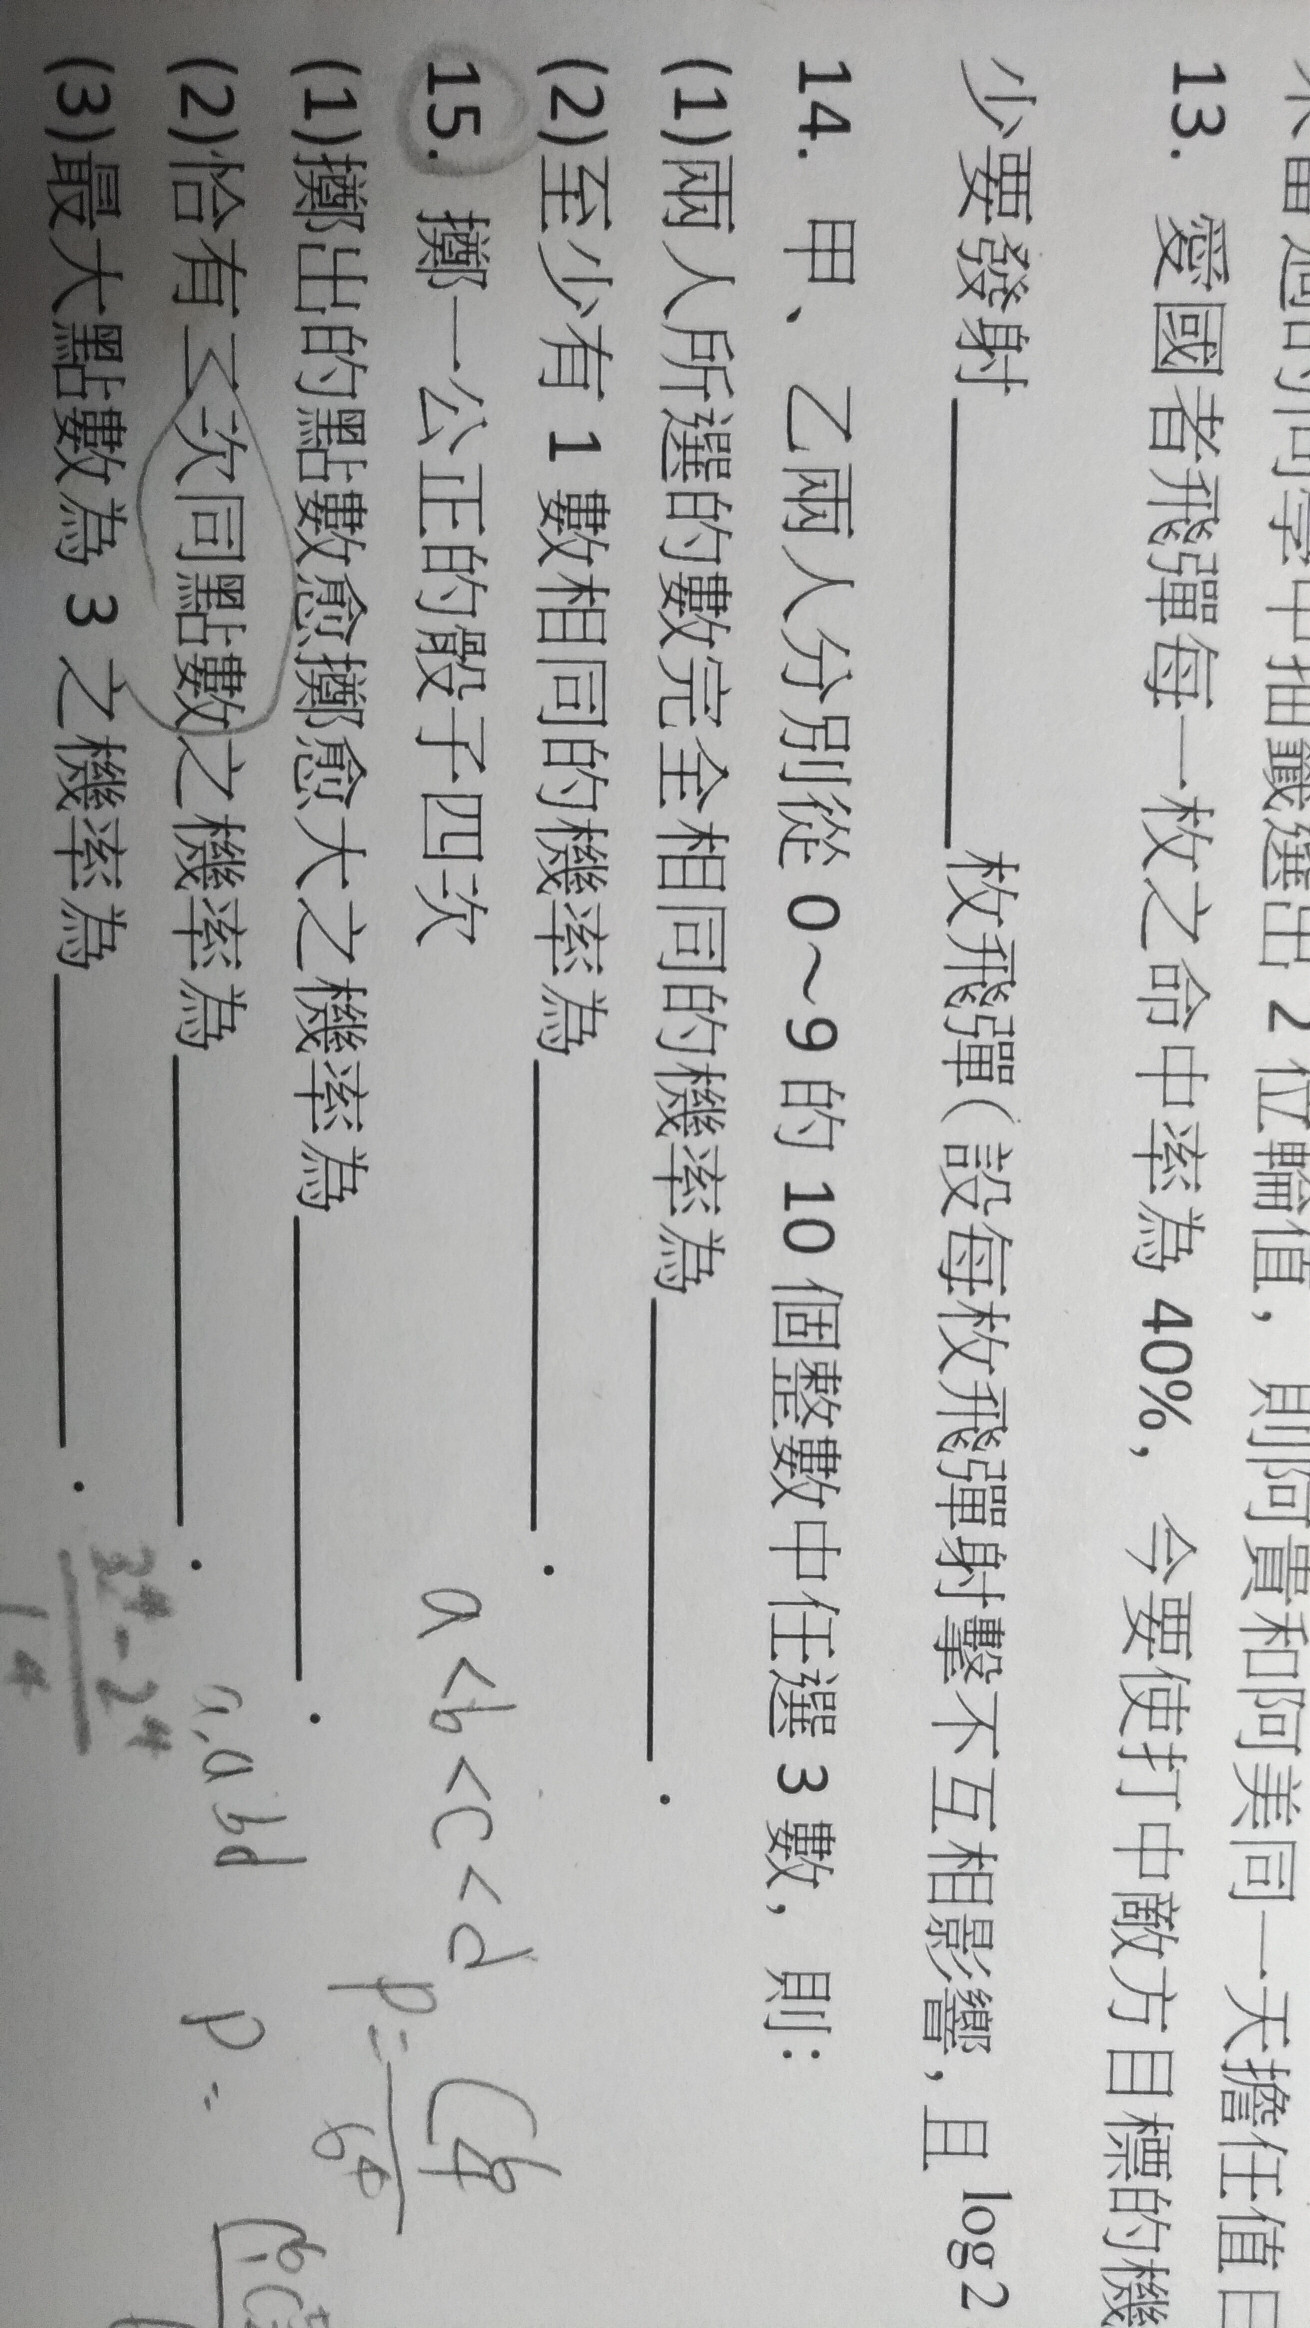 不曾過的同學中抽籤選出 2 位輪值，則阿貴和阿美同一天擔任值日
13. 愛國者飛彈每一枚之命中率為 40%，今要使打中敵方目標的機
少要發射 枚飛彈(設每枚飛彈射擊不互相影響，且 log2
14. 甲、乙兩人分別從 0～9 的 10 個整數中任選 3 數，則：
(1)兩人所選的數完全相同的機率為 .
(2)至少有 1 數相同的機率為 .
15. 擲一公正的骰子四次
a<b<c<d
(1)擲出的點數愈擲愈大之機率為 .
P= C⁶₄ / 6⁴
(2)恰有二次同點數之機率為 .
a,a b d P=
(3)最大點數為 3 之機率為 .
3⁴-2⁴